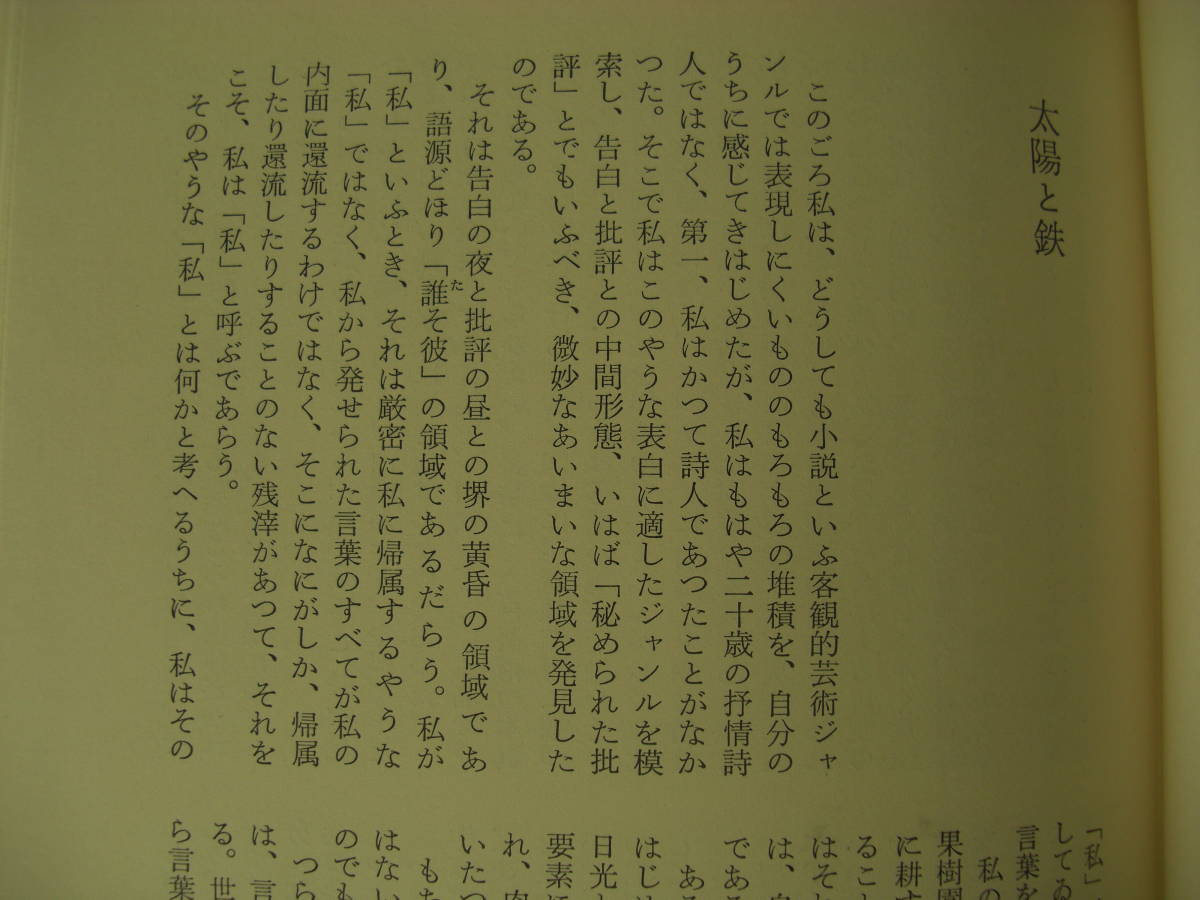 太陽と鉄
このごろ私は、どうしても小説といふ客観的芸術ジャ
ンルでは表現しにくいもののもろもろの堆積を、自分の
うちに感じてきはじめたが、私はもはや二十歳の抒情詩
人ではなく、第一、私はかつて詩人であつたことがなか
つた。そこで私はこのやうな表白に適したジャンルを模
索し、告白と批評との中間形態、いはば「秘められた批
評」とでもいふべき、微妙なあいまいな領域を発見した
のである。
それは告白の夜と批評の昼との堺の黄昏の領域であ
り、語源どほり「誰そ彼」の領域であるだらう。私が
た
「私」といふとき、それは厳密に私に帰属するやうな
「私」ではなく、私から発せられた言葉のすべてが私の
内面に還流するわけではなく、そこになにがしか、帰属
したり還流したりすることのない残滓があつて、それを
こそ、私は「私」と呼ぶであらう。
そのやうな「私」とは何かと考へるうちに、私はその
「私」
してゐ
言葉を
私の
果樹園
に耕す
ること
はそれ
は、自
である
ある
はじめ
日光
要素に
れ、肉
いたつ
もち
はない
のでも
つら
は、言
る。世
ら言葉